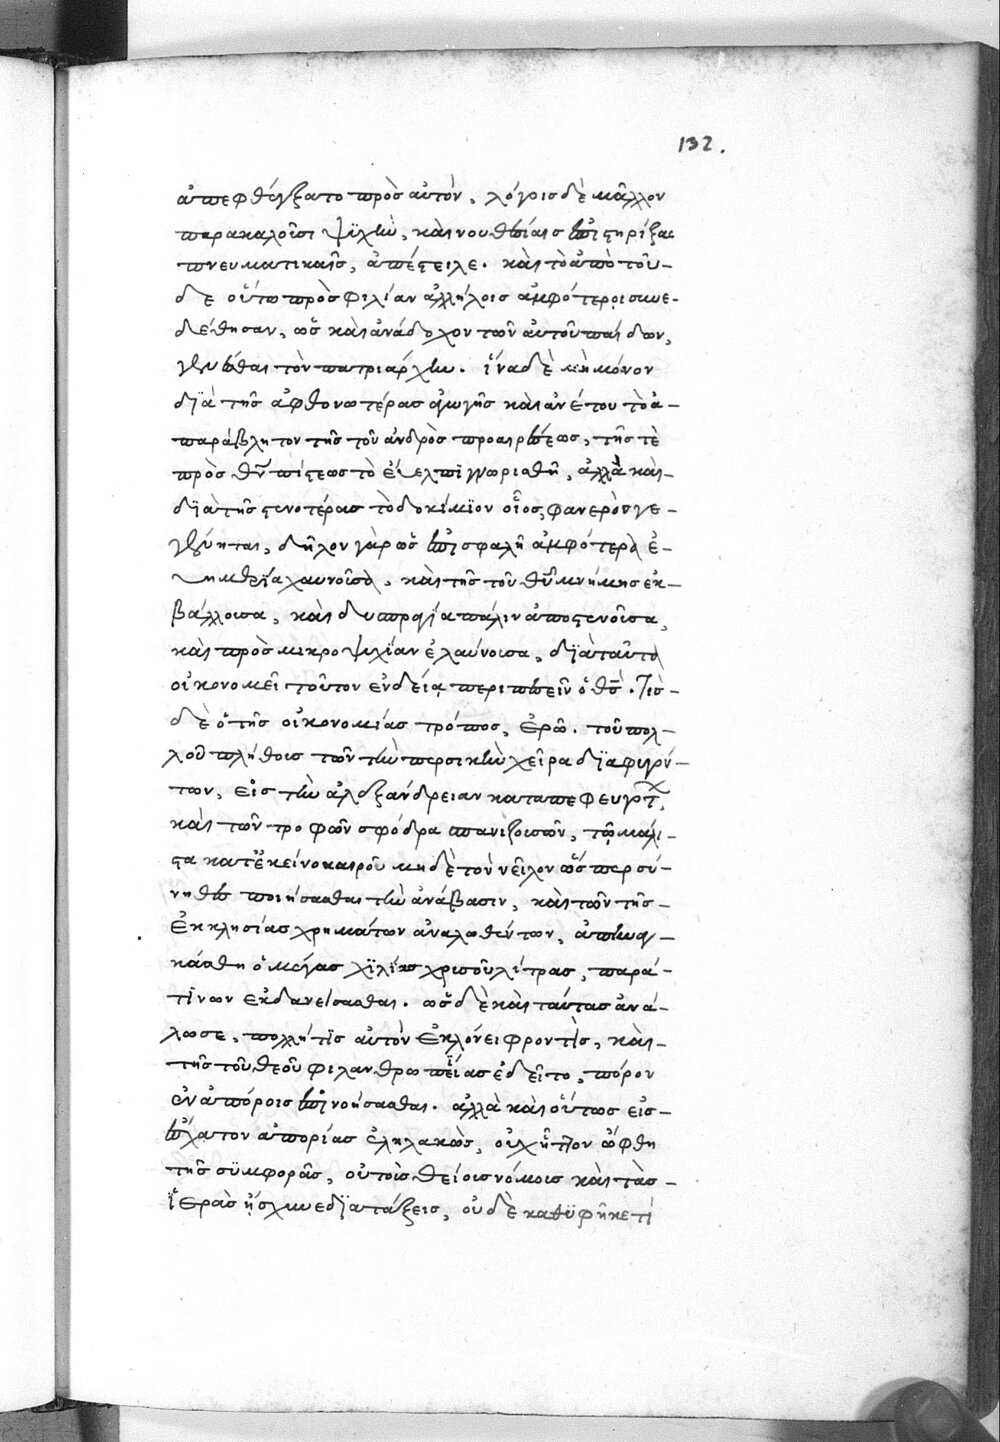 132.
ἀπεφθέγξατο πρὸς αὐτόν, λόγοις δὲ μᾶλλον
παρακαλοῦσι ψυχὴν, καὶ νουθεσίαις ἐπιστηρίξας
πνευματικαῖς, ἀπέστειλε. καὶ τὸ ἀπὸ τοῦ-
δε οὕτω πρὸς φιλίαν ἀλλήλοις ἀμφότεροι συνε-
δέθησαν, ὡς καὶ ἀνάδοχον τῶν αὐτοῦ παίδων,
γενέσθαι τὸν πατριάρχην. ἵνα δὲ μὴ μόνον
διὰ τῆς ἀφθονωτέρας ἀγωγῆς καὶ ἀνέτου τὸ ἀ-
παράβλητον τῆς τοῦ ἀνδρὸς προαιρέσεως, τῆς τὲ
πρὸς θν πίστεως τὸ εὔελπι γνωρισθῆ, ἀλλὰ καὶ
διὰ τῆς στενοτέρας τὸ δοκίμιον οἷος, φανερὸς γέ-
γένηται, δῆλον γὰρ ὡς ἐπισφαλῆ ἀμφότερα εὐ-
ημερία χαυνοῦσα, καὶ τῆς τοῦ θυ μνήμης ἐκ-
βάλλουσα, καὶ δυσπραγία πάλιν ἀποστενοῦσα,
καὶ πρὸς μικροψυχίαν ἐλαύνουσα, διὰ ταῦτα
οἰκονομεῖ τοῦτον ἐνδείᾳ περιπεσεῖν ὁ θς. Τίς
δὲ ὁ τῆς οἰκονομίας τρόπος, ἐρῶ. τοῦ πολ-
λοῦ πλήθους τῶν τὴν περσικὴν χεῖρα διαφυγόν-
των, εἰς τὴν ἀλεξάνδρειαν καταπεφευγότ,
καὶ τῶν τροφῶν σφόδρα σπανιζουσῶν, τῷ μάλι-
στα κατ' ἐκεῖνο καιροῦ μηδὲ τὸν νεῖλον ὥσπερ σύ-
νηθες ποιήσασθαι τὴν ἀνάβασιν, καὶ τῶν τῆς
ἐκκλησίας χρημάτων ἀναλωθέντων, ἀπηναγ-
κάσθη ὁ μέγας χιλίας χρυσοῦ λίτρας, παρά
τινων ἐκδανείσασθαι. ὡς δὲ καὶ ταύτας ἀνά-
λωσε, πολλή τις αὐτὸν ἐκλόνει φροντὶς, καὶ
τῆς τοῦ θεοῦ φιλανθρωπίας ἐδεῖτο, πόρον
ἐν ἀπόροις ἐπινοήσασθαι. ἀλλὰ καὶ οὕτως εἰς
ἔσχατον ἀπορίας ἐληλακὼς, οὐχ ἧττον ὤφθη
τῆς συμφορᾶς, οὐ τοὺς θείους νόμους καὶ τὰς
ἱερὰς ᾔσχυνε διατάξεις, οὐδὲ καθυφῆκε τί